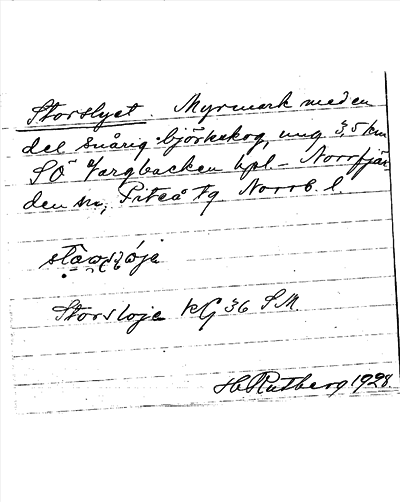 Storslyet. Myrmark med en
del snårig björkskog, ung 3,5 km
SÖ Vargbacken hpl - Norrfjär-
den sn, Piteå tg Norrb. l.
Storsloje KG 36 S.M.
H Rutberg 1928.